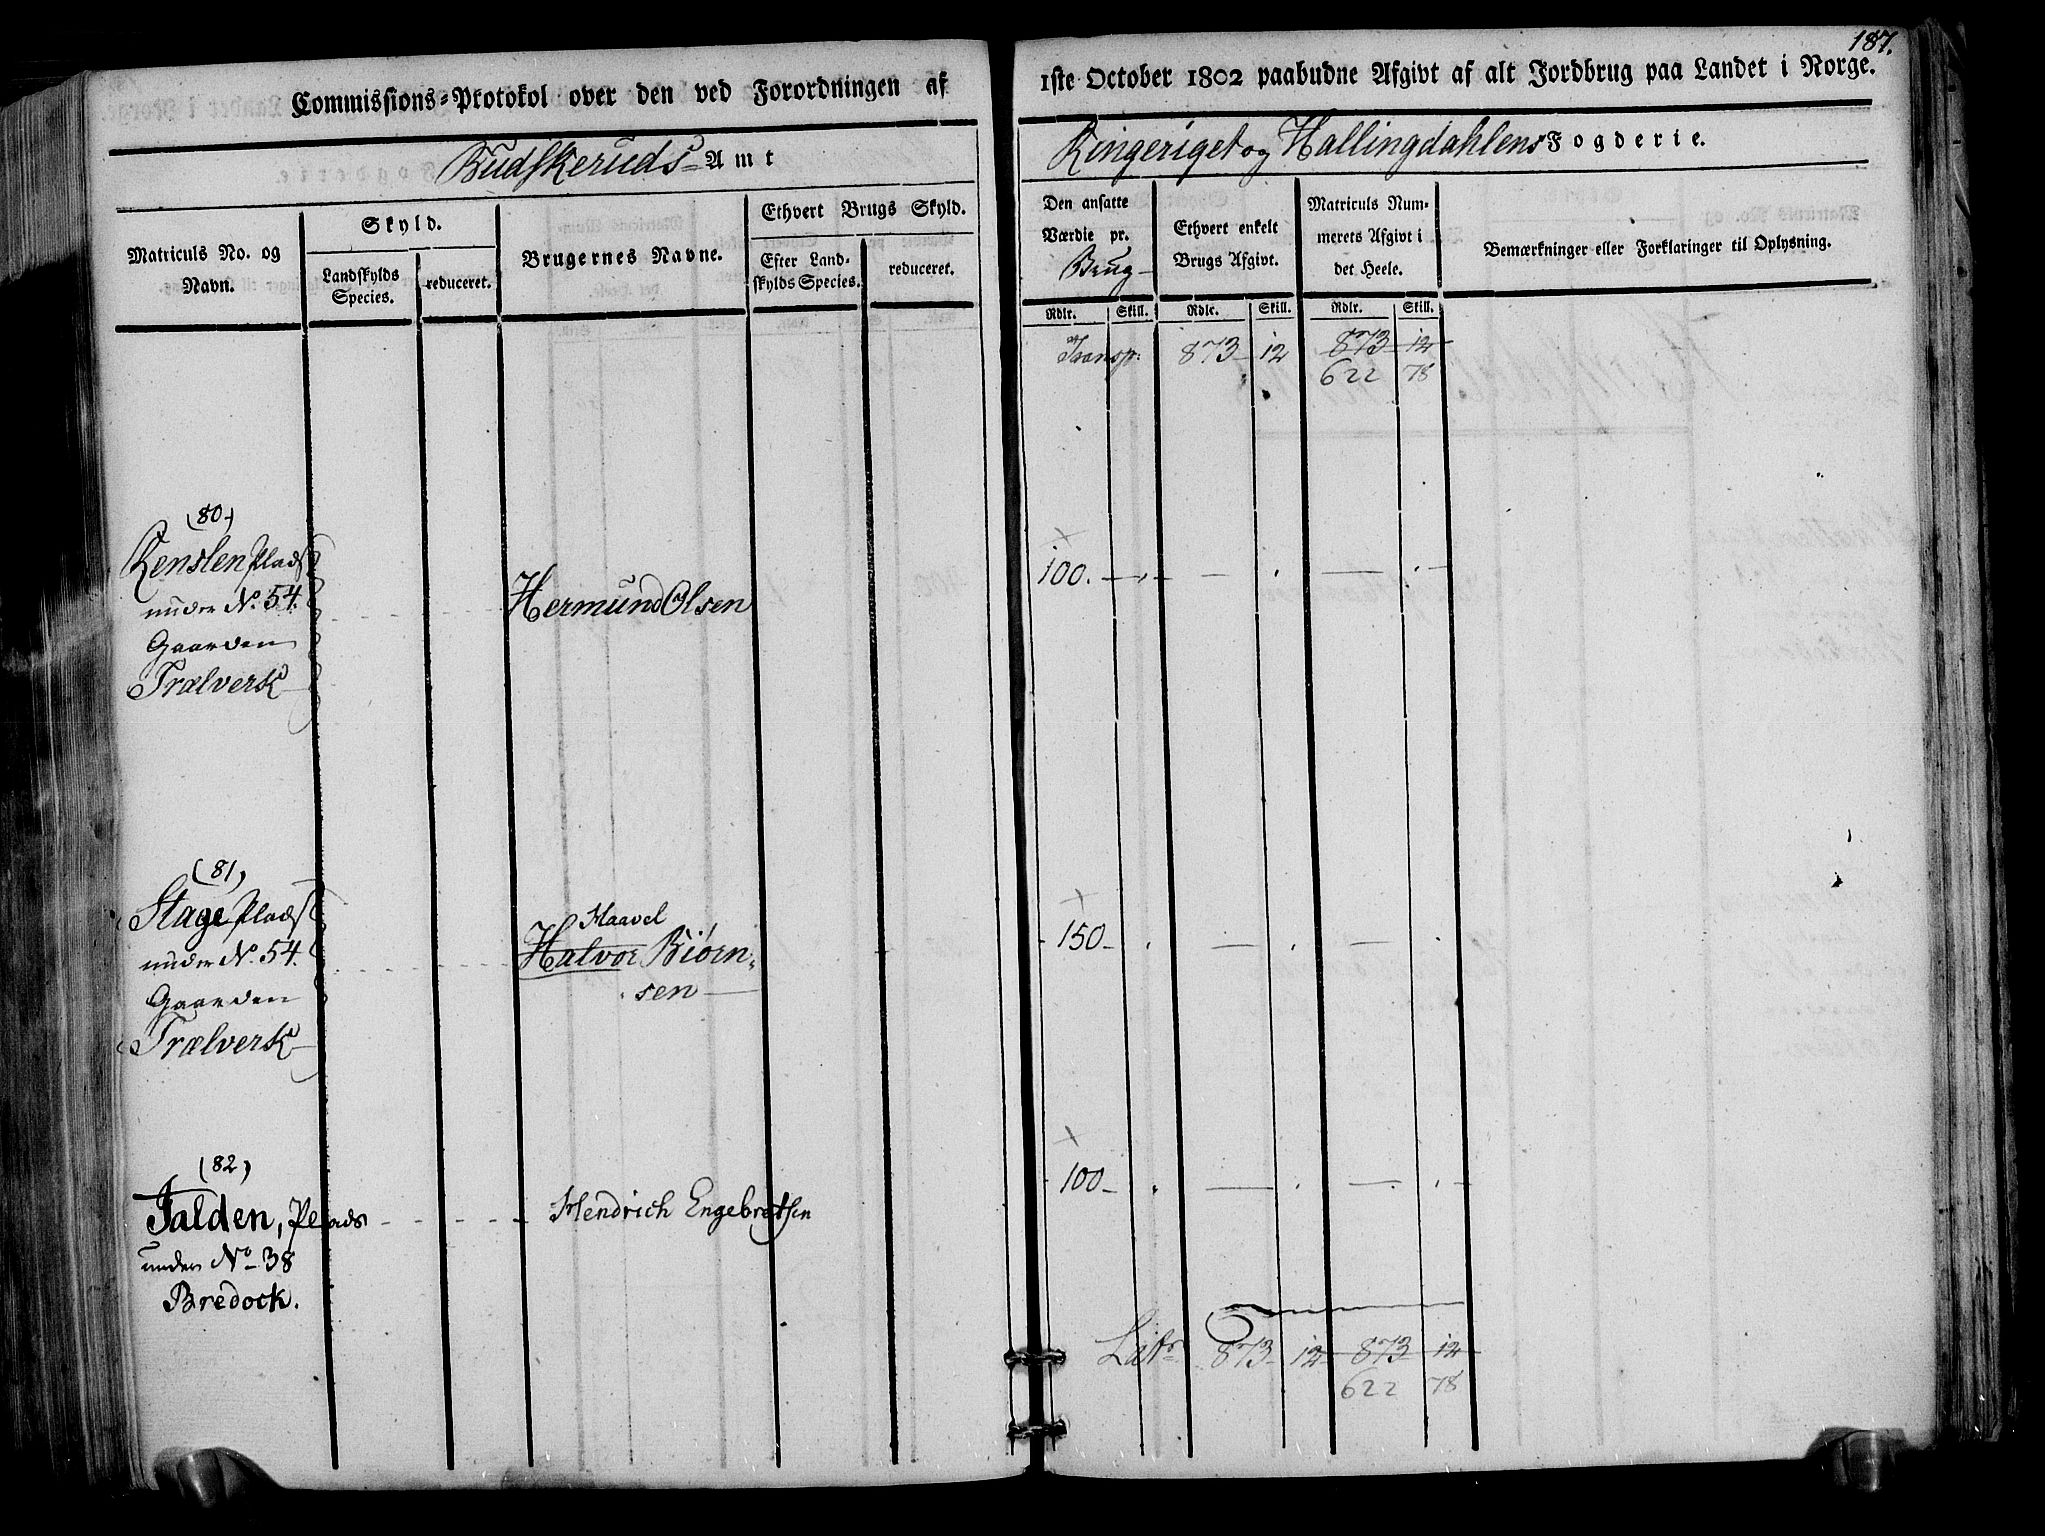 187.
Commissions-Protokol over den ved Forordningen af 1ste October 1802 paabudne Afgivt af alt Jordbrug paa Landet i Norge.
Budskeruds Amt
Ringeriget og Hallingdahlens Fogderie.
Matriculs No. og Navn.
Skyld.
Landskylds Species.
reduceret.
Brugernes Navne.
Ethvert Brugs Skyld.
Efter Landskylds Species.
reduceret.
Den ansatte Værdie pr. Brug
Ethvert enkelt Brugs Afgivt.
Matriculs Nummerets Afgivt i det Heele.
Bemærkninger eller Forklaringer til Oplysning.
Rdlr. Skill. Rdlr. Skill. Rdlr. Skill.
Transp: 873 12 873 12
622 78
(80)
Renslen Plads
under No. 54.
Gaarden
Trælverk
Hermund Olsen
100.
(81)
Stage Plads
under No. 54.
Gaarden
Trælverk
Haavel
Halvor Biørn-
sen
150
(82)
Jalden, Plads
under No 38
Bredock.
Hendrich Engebretsen
100
Latr 873 12 873 12
622 78